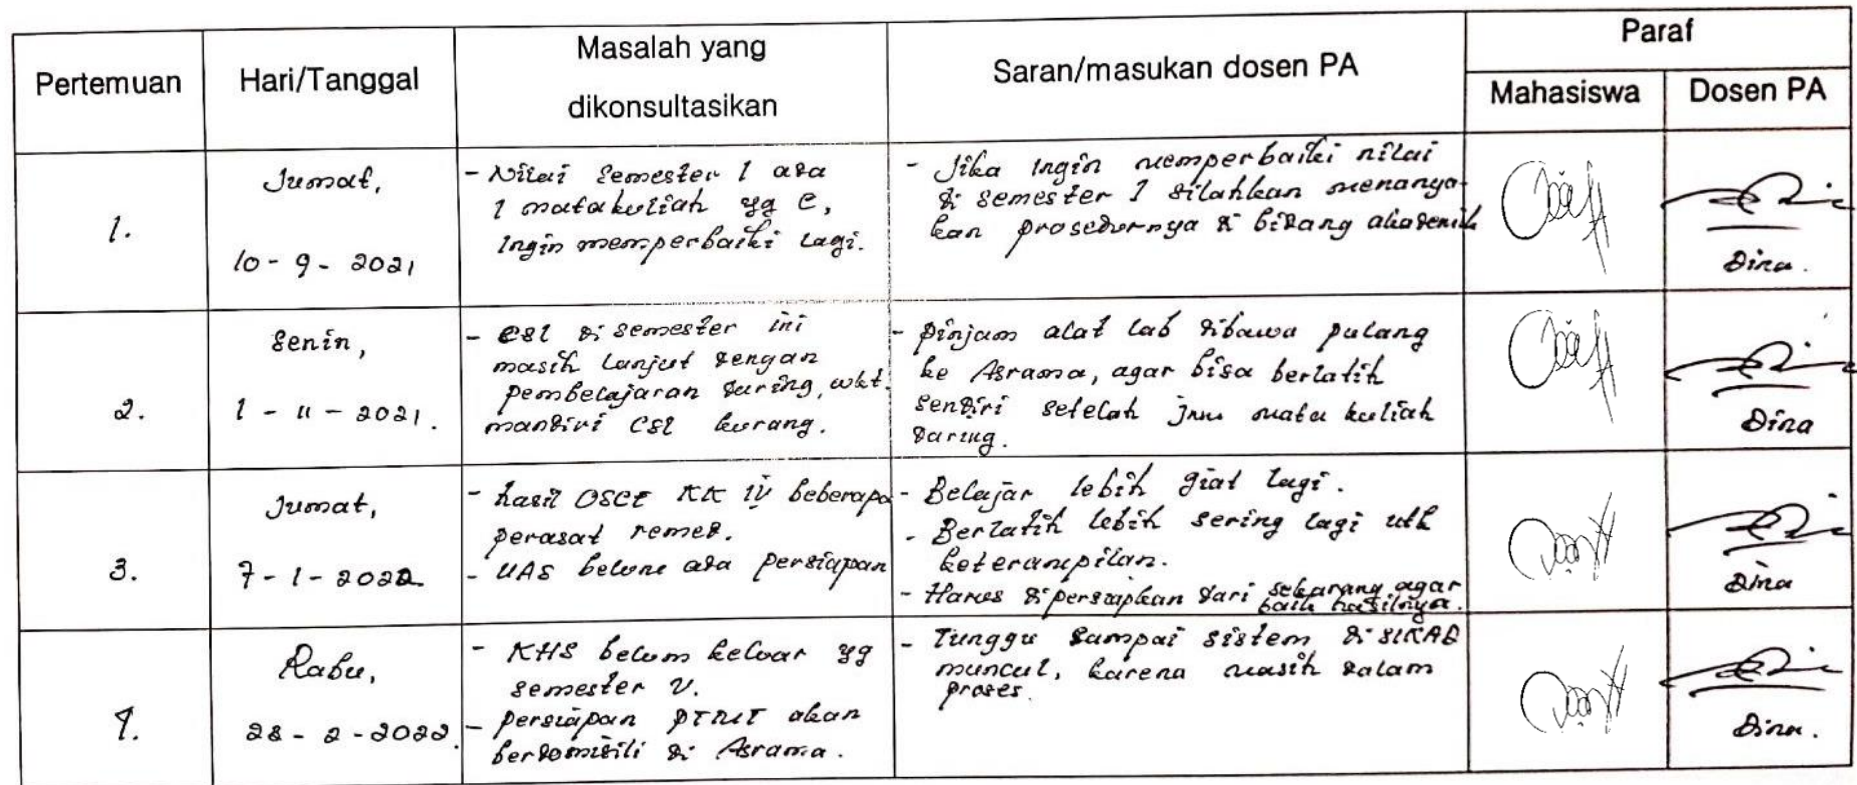 Pertemuan
Hari/Tanggal
Masalah yang
dikonsultasikan
Saran/masukan dosen PA
Paraf
Mahasiswa
Dosen PA
1.
Jumat,
10 - 9 - 2021
- Nilai semester 1 ada
1 matakuliah yg C,
Ingin memperbaiki lagi.
- Jika ingin memperbaiki nilai
di semester 1 silahkan menanya-
kan prosedurnya di bidang akademik
Dina.
2.
Senin,
1 - 11 - 2021.
- CSL di semester ini
masih lanjut dengan
pembelajaran daring, wkt.
mandiri CSL kurang.
- Pinjam alat lab dibawa pulang
ke Asrama, agar bisa berlatih
sendiri setelah jam mata kuliah
daring.
Dina
3.
Jumat,
7 - 1 - 2022
- hasil OSCE KK IV beberapa
perasat remed.
- UAS belum ada persiapan
- Belajar lebih giat lagi.
- Berlatih lebih sering lagi utk
keterampilan.
- Harus dipersiapkan dari sekarang agar
baik hasilnya.
Dina
4.
Rabu,
28 - 2 - 2022.
- KHS belum keluar yg
semester V.
- persiapan akan
berdomisili di Asrama.
- Tunggu sampai sistem di
muncul, karena masih dalam
proses.
Dina.